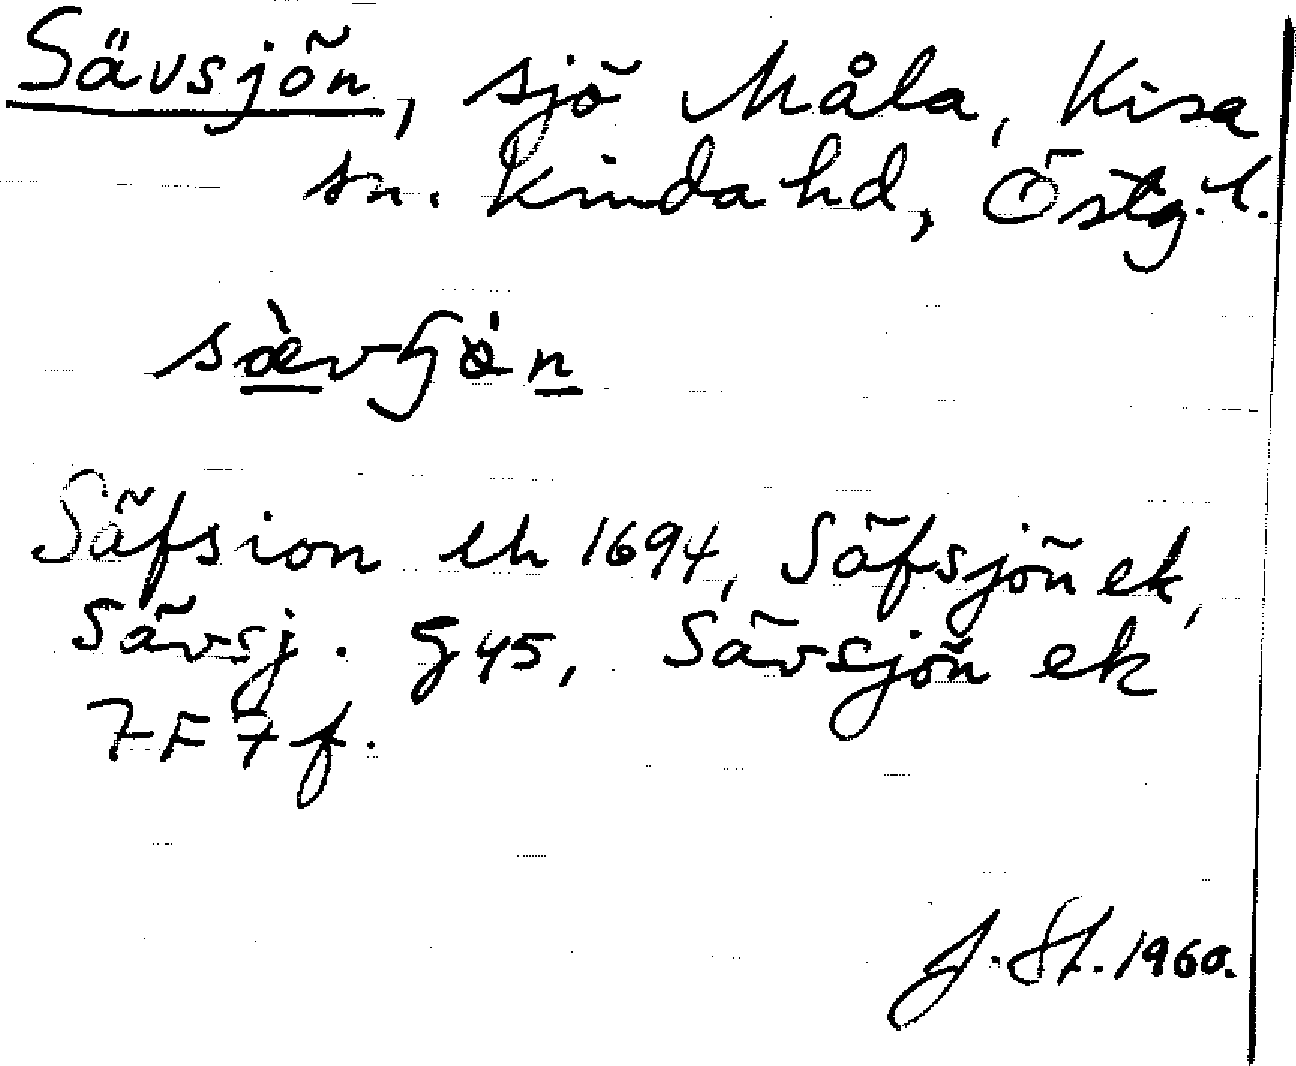 Sävsjön, sjö Måla, Kisa
sn. Kinda hd, Östg. l.
Säfsion ek 1694, Säfsjön ek,
Sävsj. G 45, Sävsjön ek
7 F 7 f.
J. St. 1960.